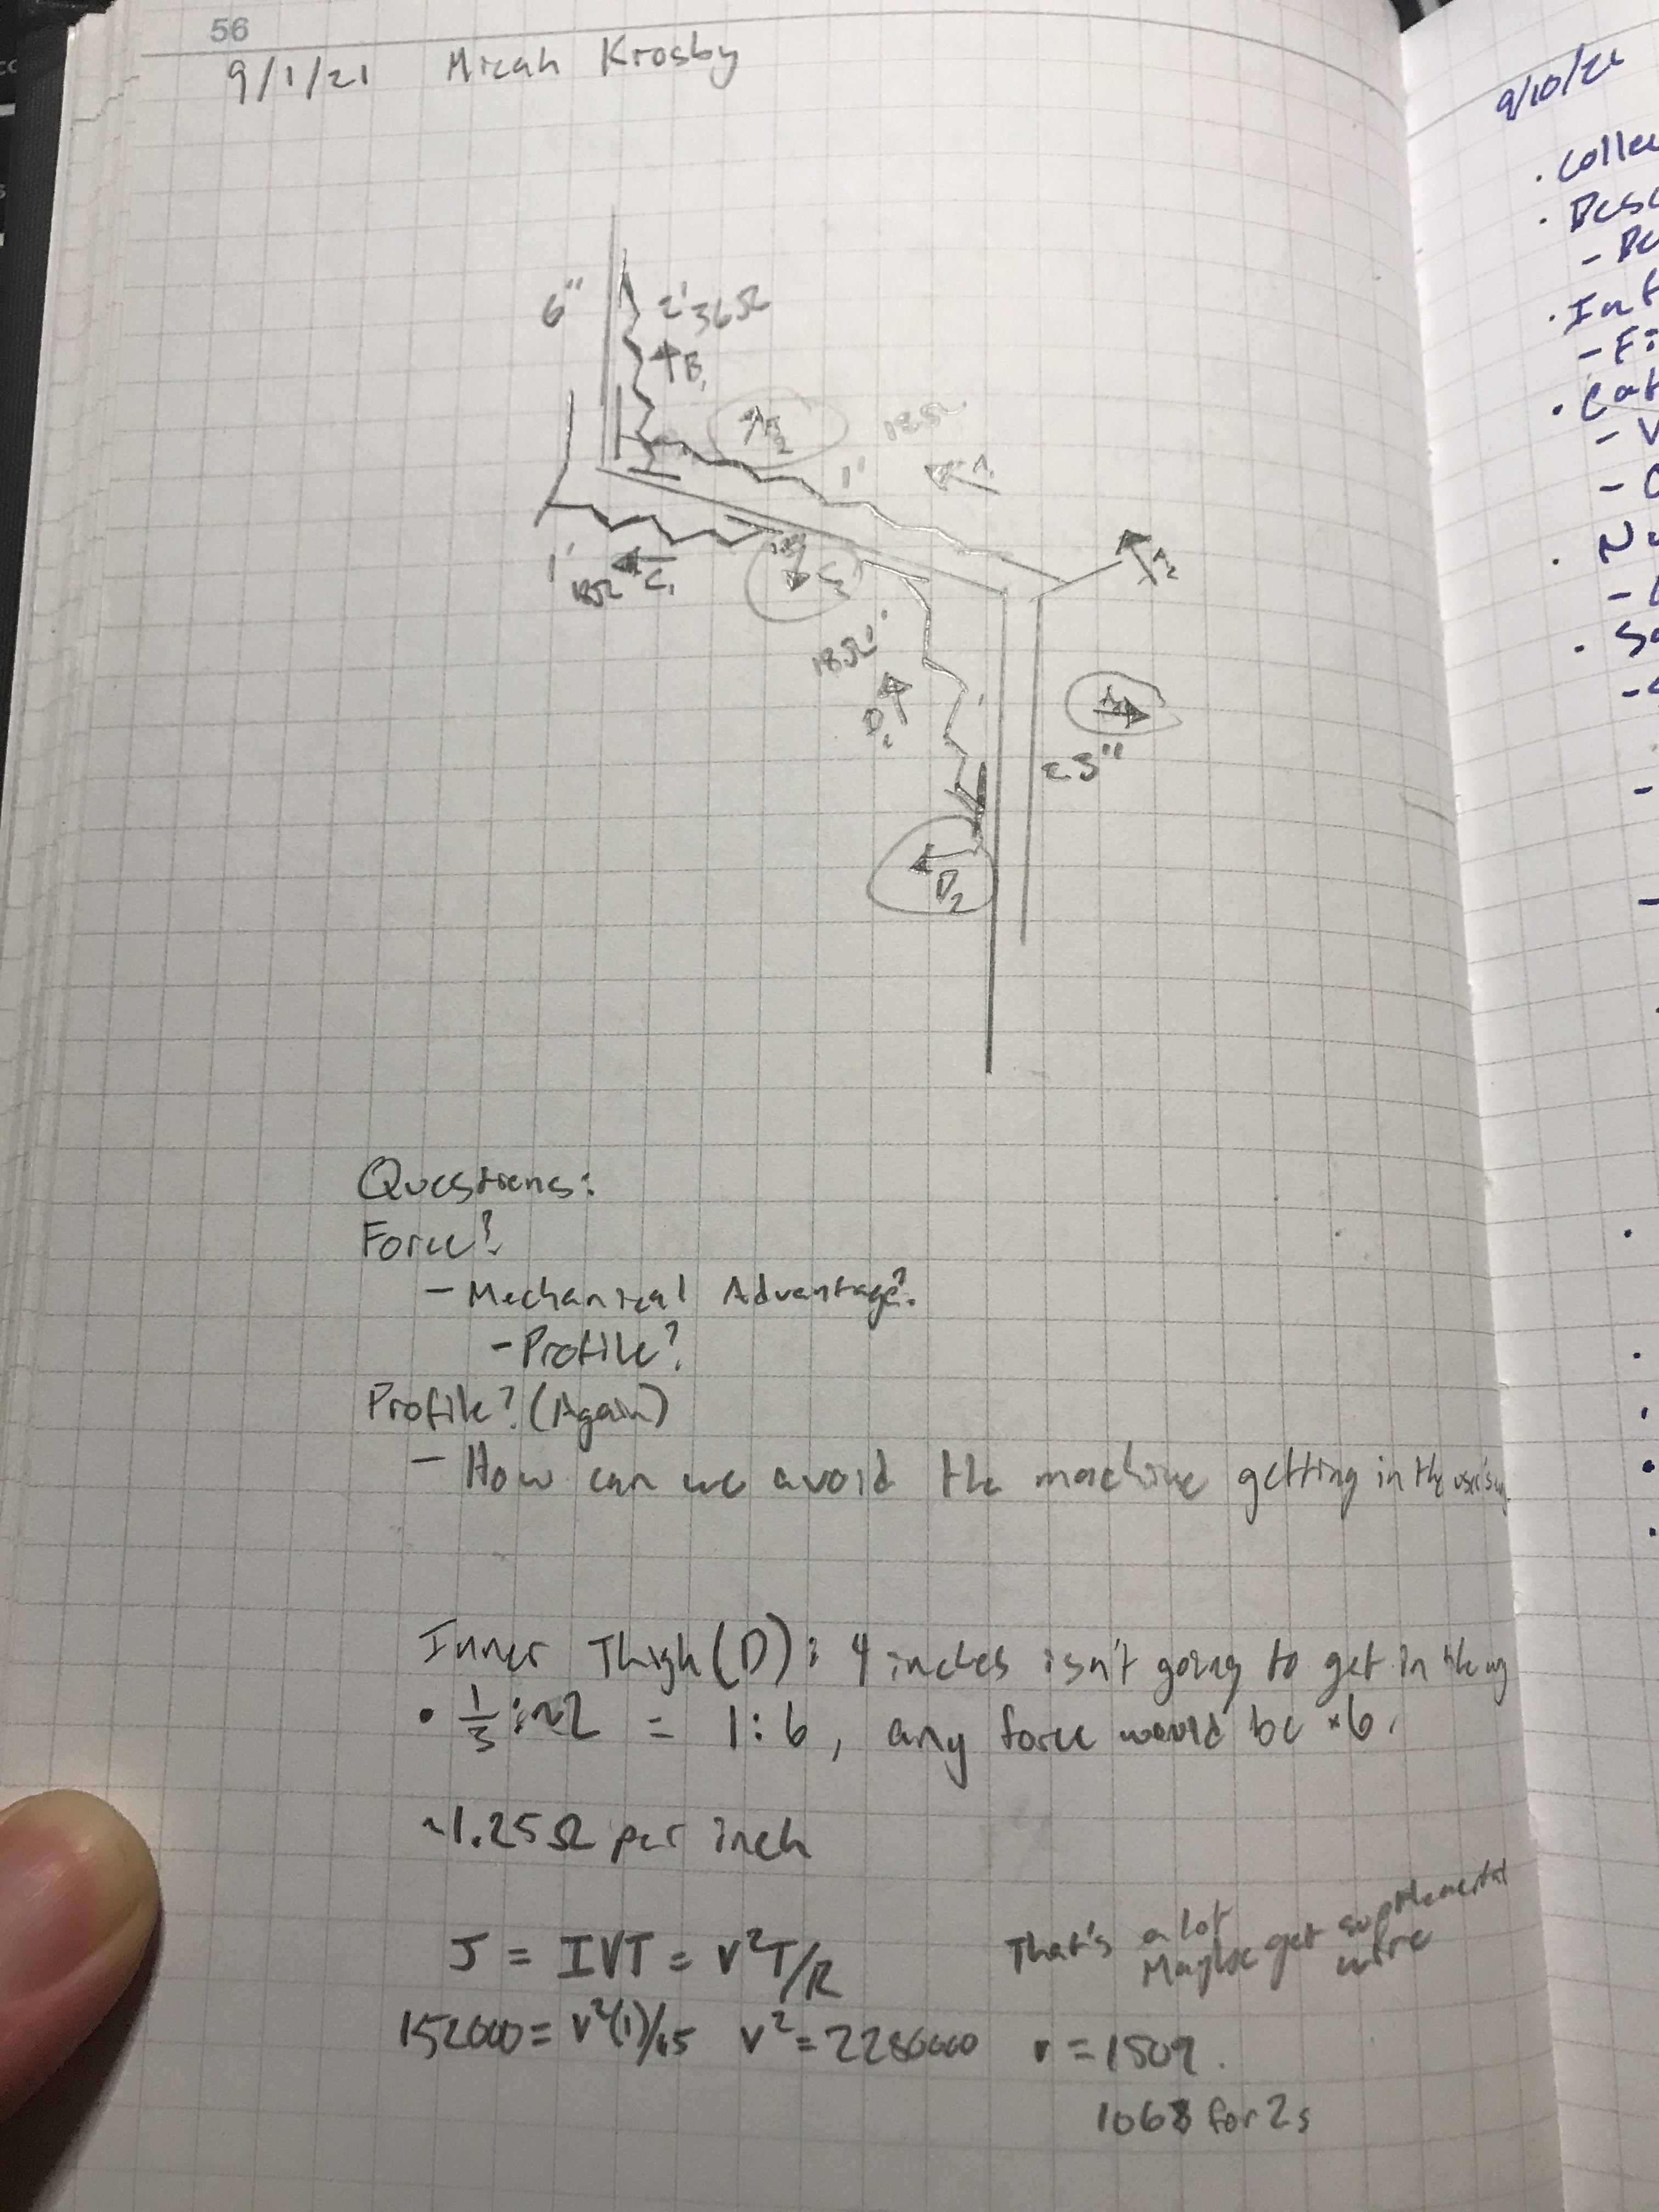 56
9/1/21 Micah Krosby
6"
2' 36Ω
B₁
18Ω
1'
A₁
A₂
1'
18Ω C₁
C₂
18Ω 1'
D₁
23"
D₂
Questions:
Force?
- Mechanical Advantage?
- Profile?
Profile? (Again)
- How can we avoid the machine getting in the user's way
Inner Thigh (D): 4 inches isn't going to get in the way
• 1/3 : ~2 = 1:6, any force would be ×6.
~1.25Ω per inch
J = IVT = V²T/R
That's a lot
Maybe get supplemental wire
152000 = V²(1)/15 V² = 2280000 V = 1509.
1068 for 2s
9/10/21
· Colle
· Desc
· Int
- Fi
· Cat
- V